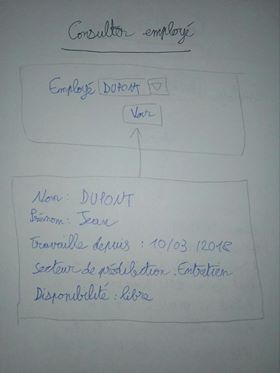 Consulter employé
Employé DUPONT
Voir
Nom : DUPONT
Prénom : Jean
Travaille depuis : 10/03/2018
Secteur de prédilection : Entretien
Disponibilité : libre